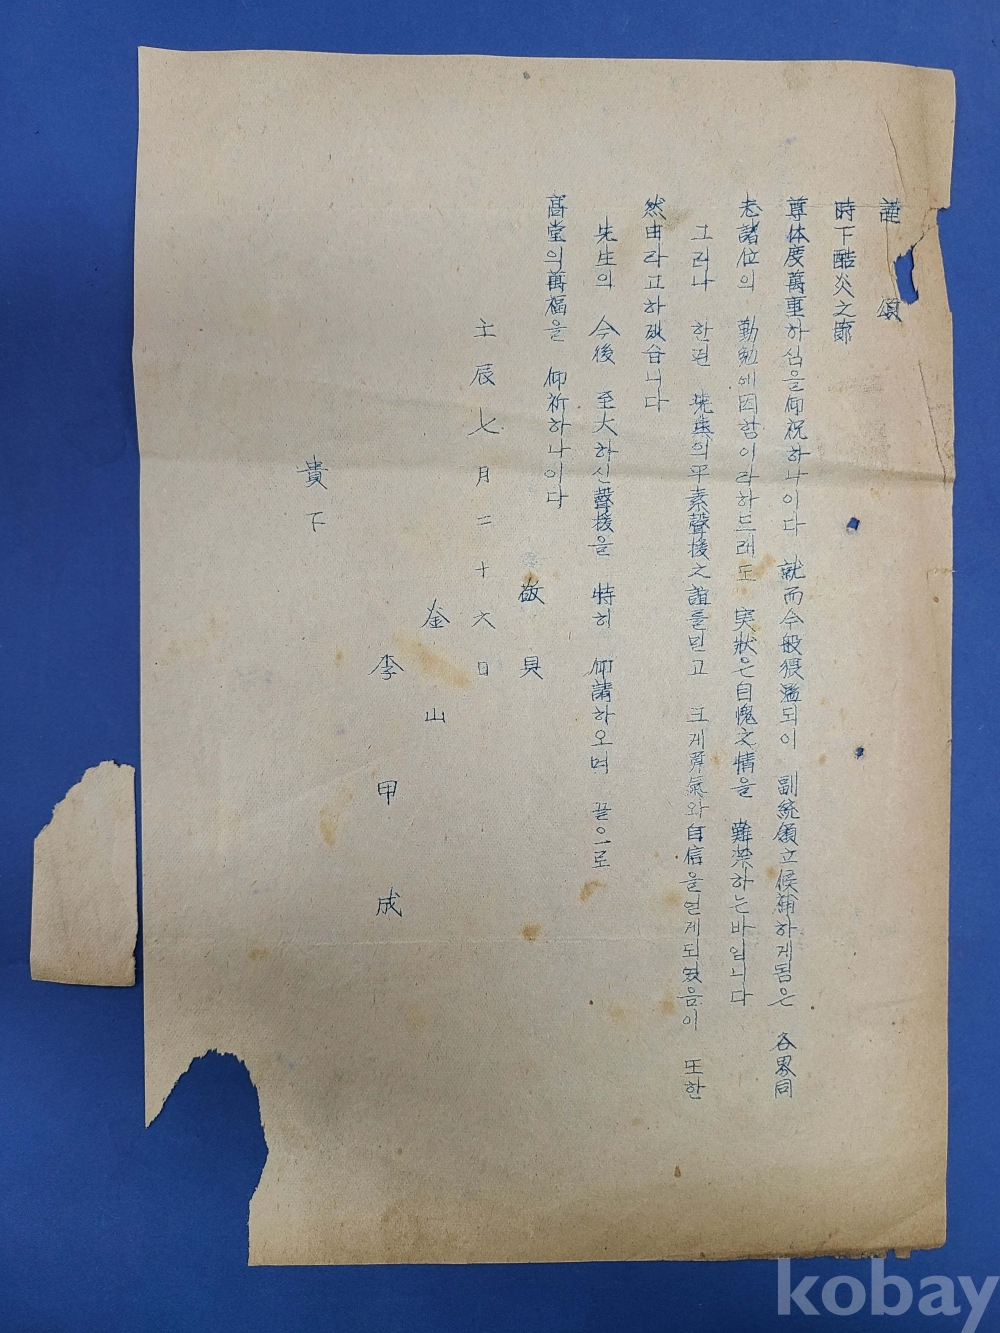 謹 頌
時下酷炎之節
尊体度萬重하심을仰祝하나이다 就而今般猥濫되이 副統領立候補하게됨은 各界同
志諸位의 勤勉에因함이라하드래도 実狀은自愧之情을 難禁하는바입니다
그러나 한편 先生의平素聲援之誼를믿고 크게勇氣와自信을얻게되였음이 또한
然由라고하겠습니다
先生의 今後 至大하신聲援을 特히 仰請하오며 끝으로
高堂의萬福을 仰祈하나이다
敬具
壬辰七月二十六日
釜山
李甲成
貴下
kobay